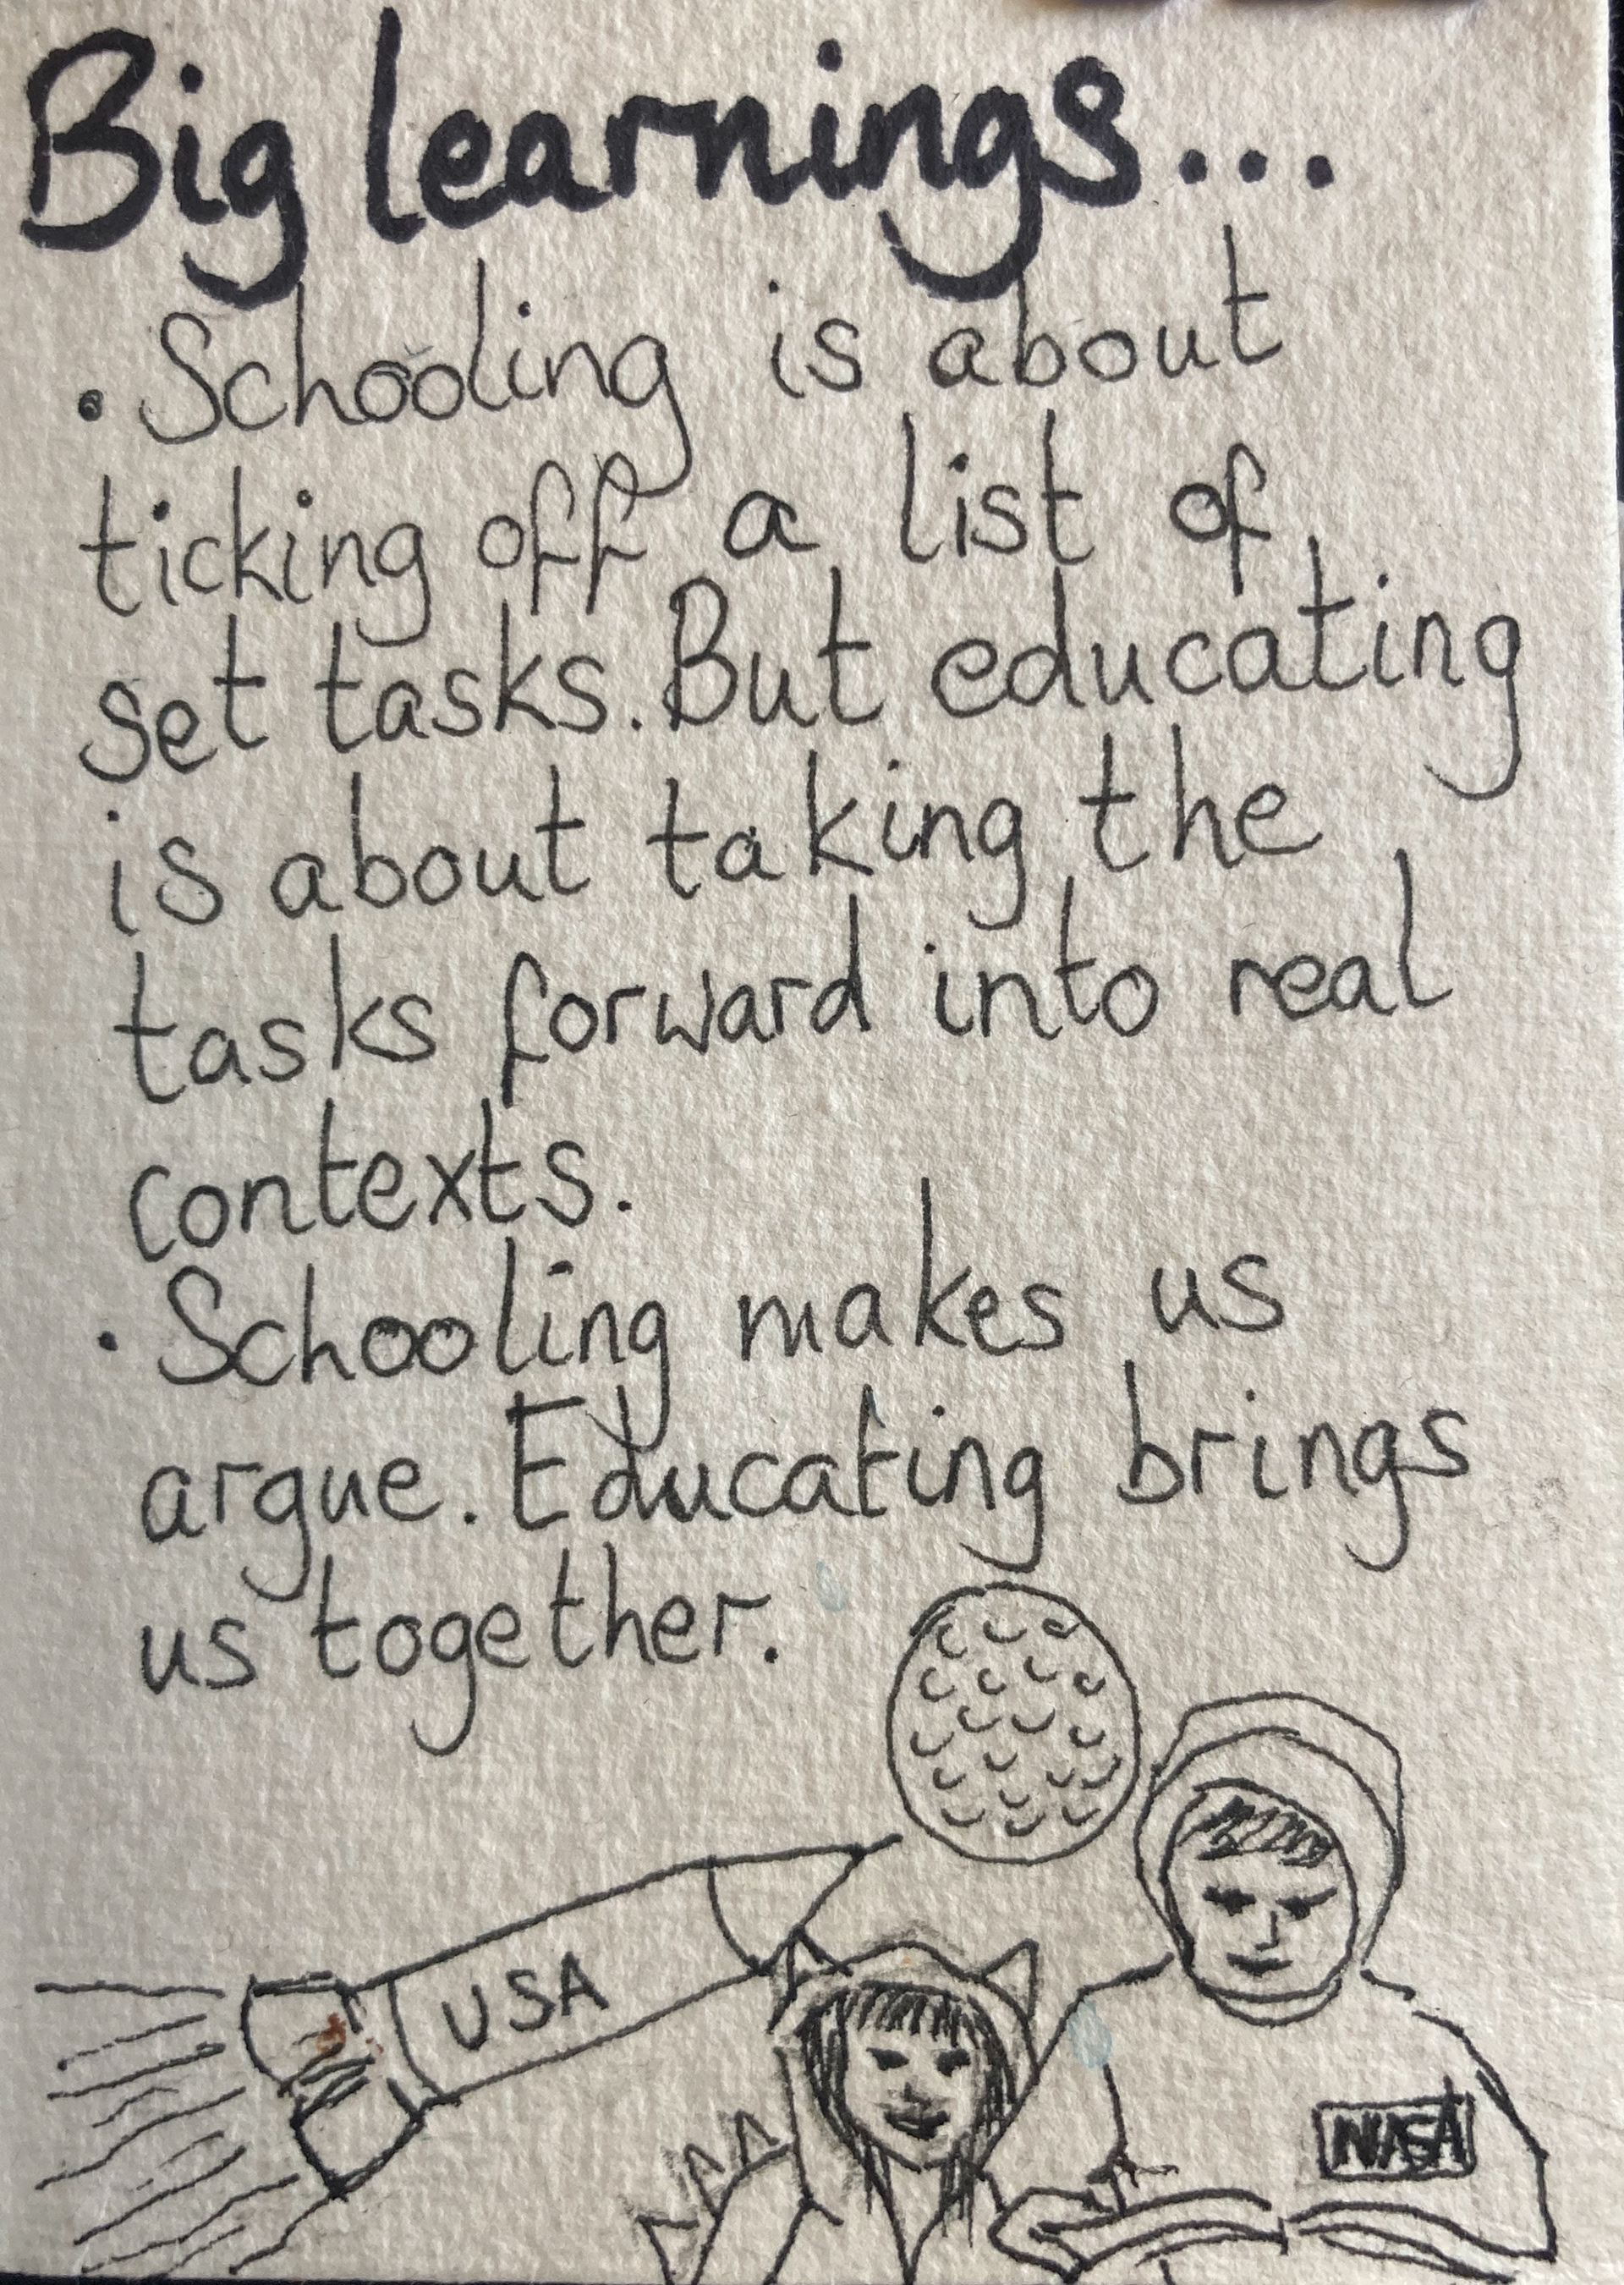 Big learnings...
• Schooling is about
ticking off a list of
set tasks. But educating
is about taking the
tasks forward into real
contexts.
• Schooling makes us
argue. Educating brings
us together.
USA
NASA